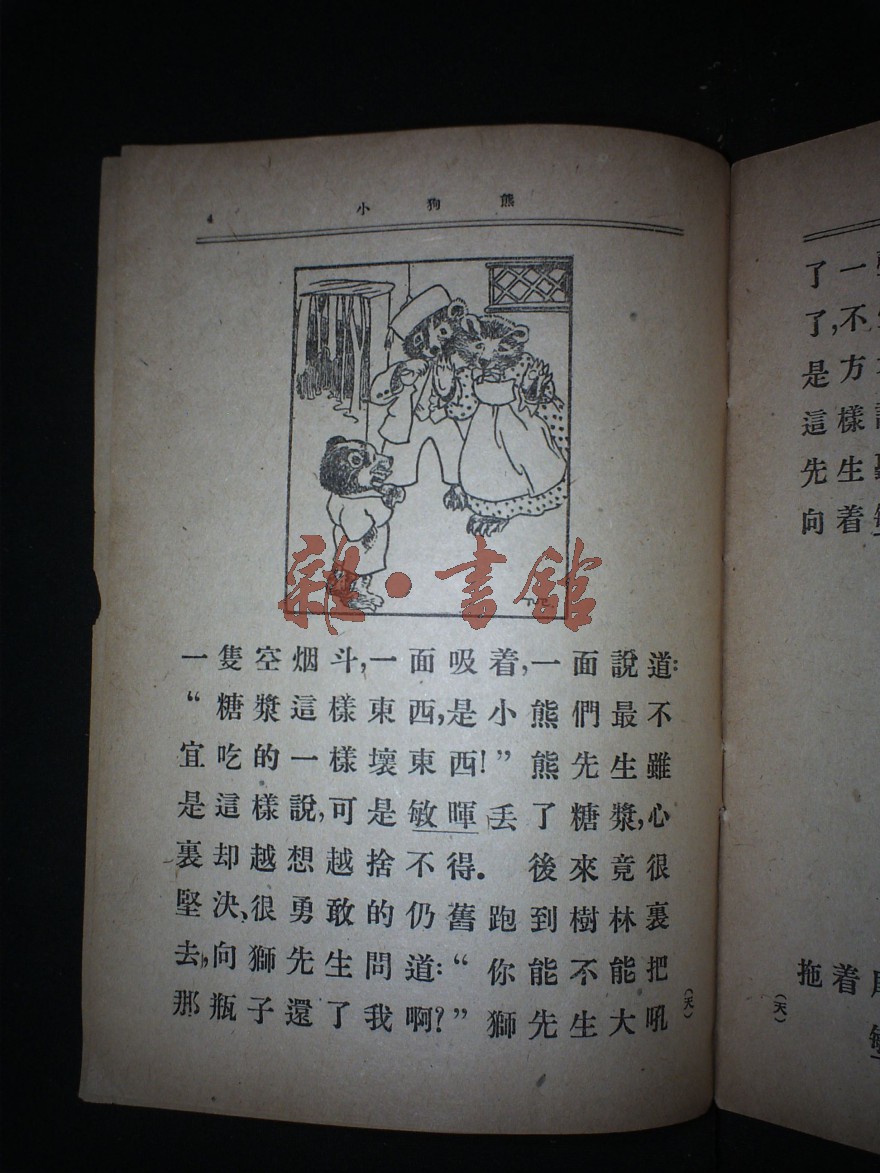 4 小狗熊
一隻空烟斗,一面吸着,一面說道:
“糖漿這樣東西,是小熊們最不
宜吃的一樣壞東西!”熊先生雖
是這樣說,可是敏暉丢了糖漿,心
裏却越想越捨不得。後來竟很
堅決、很勇敢的仍舊跑到樹林裏
去,向獅先生問道:“你能不能把
那瓶子還了我啊?”獅先生大吼
(天)
雜·書館
了一
了,不
是方
這樣
先生
向着
拖着
(天)